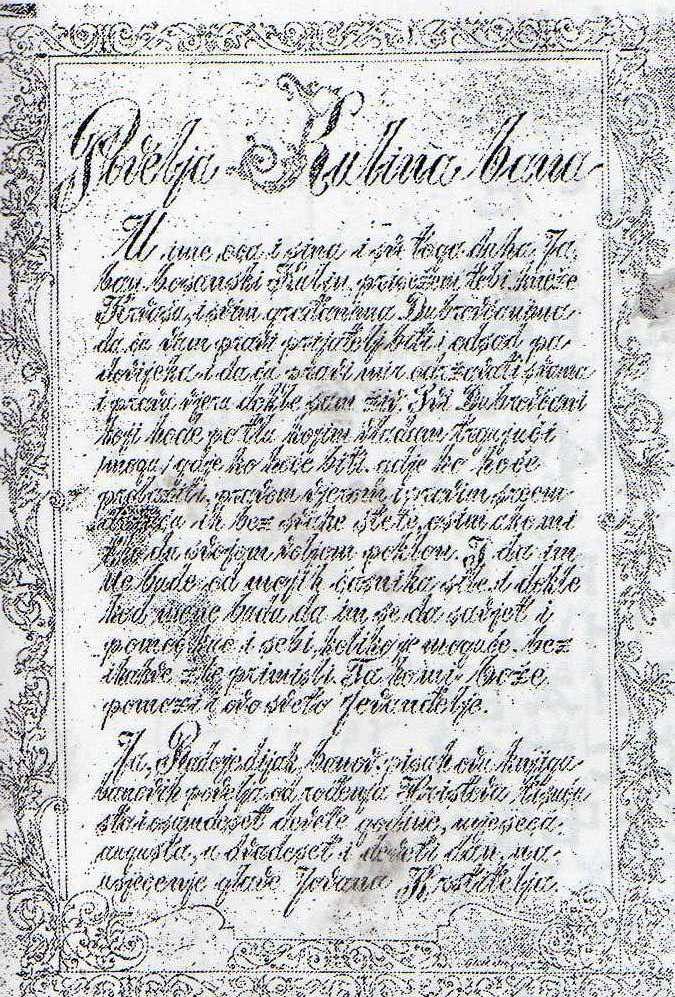 Povelja Kulina bana
U ime oca i sina i sve toga duha. Ja,
ban bosanski Kulin, prisežem tebi, kneže
Krvašu, i svim građanima Dubrovčanima
da ću vam pravi prijatelj biti i odsad pa
dovijeka i da ću pravi mir održavati s vama
i pravu vjeru dokle sam živ. Svi Dubrovčani
koji hode kojim vladam trgujući
/mogu/ gdje ko hoće biti gdje ko hoće
pravom vjerom i pravim srcem
ih bez svake štete, osim ako mi
ko da svojom voljom poklon. I da im
ne bude od mojih časnika sile. I dokle
kod mene budu da im se da savjet i
pomoć kao i sebi, koliko je moguće, bez
ikakve zle primisli. Tako mi bože
pomozi i ovo sveto Jevanđelje.
Ja, Radoje dijak banov, pisah ovu knjigu
banovih povelja od rođenja Hristova, tisuću
sto i osamdeset devete godine, mjeseca
augusta, u dvadeset i deveti dan, na
usječenje glave Jovana Krstitelja.